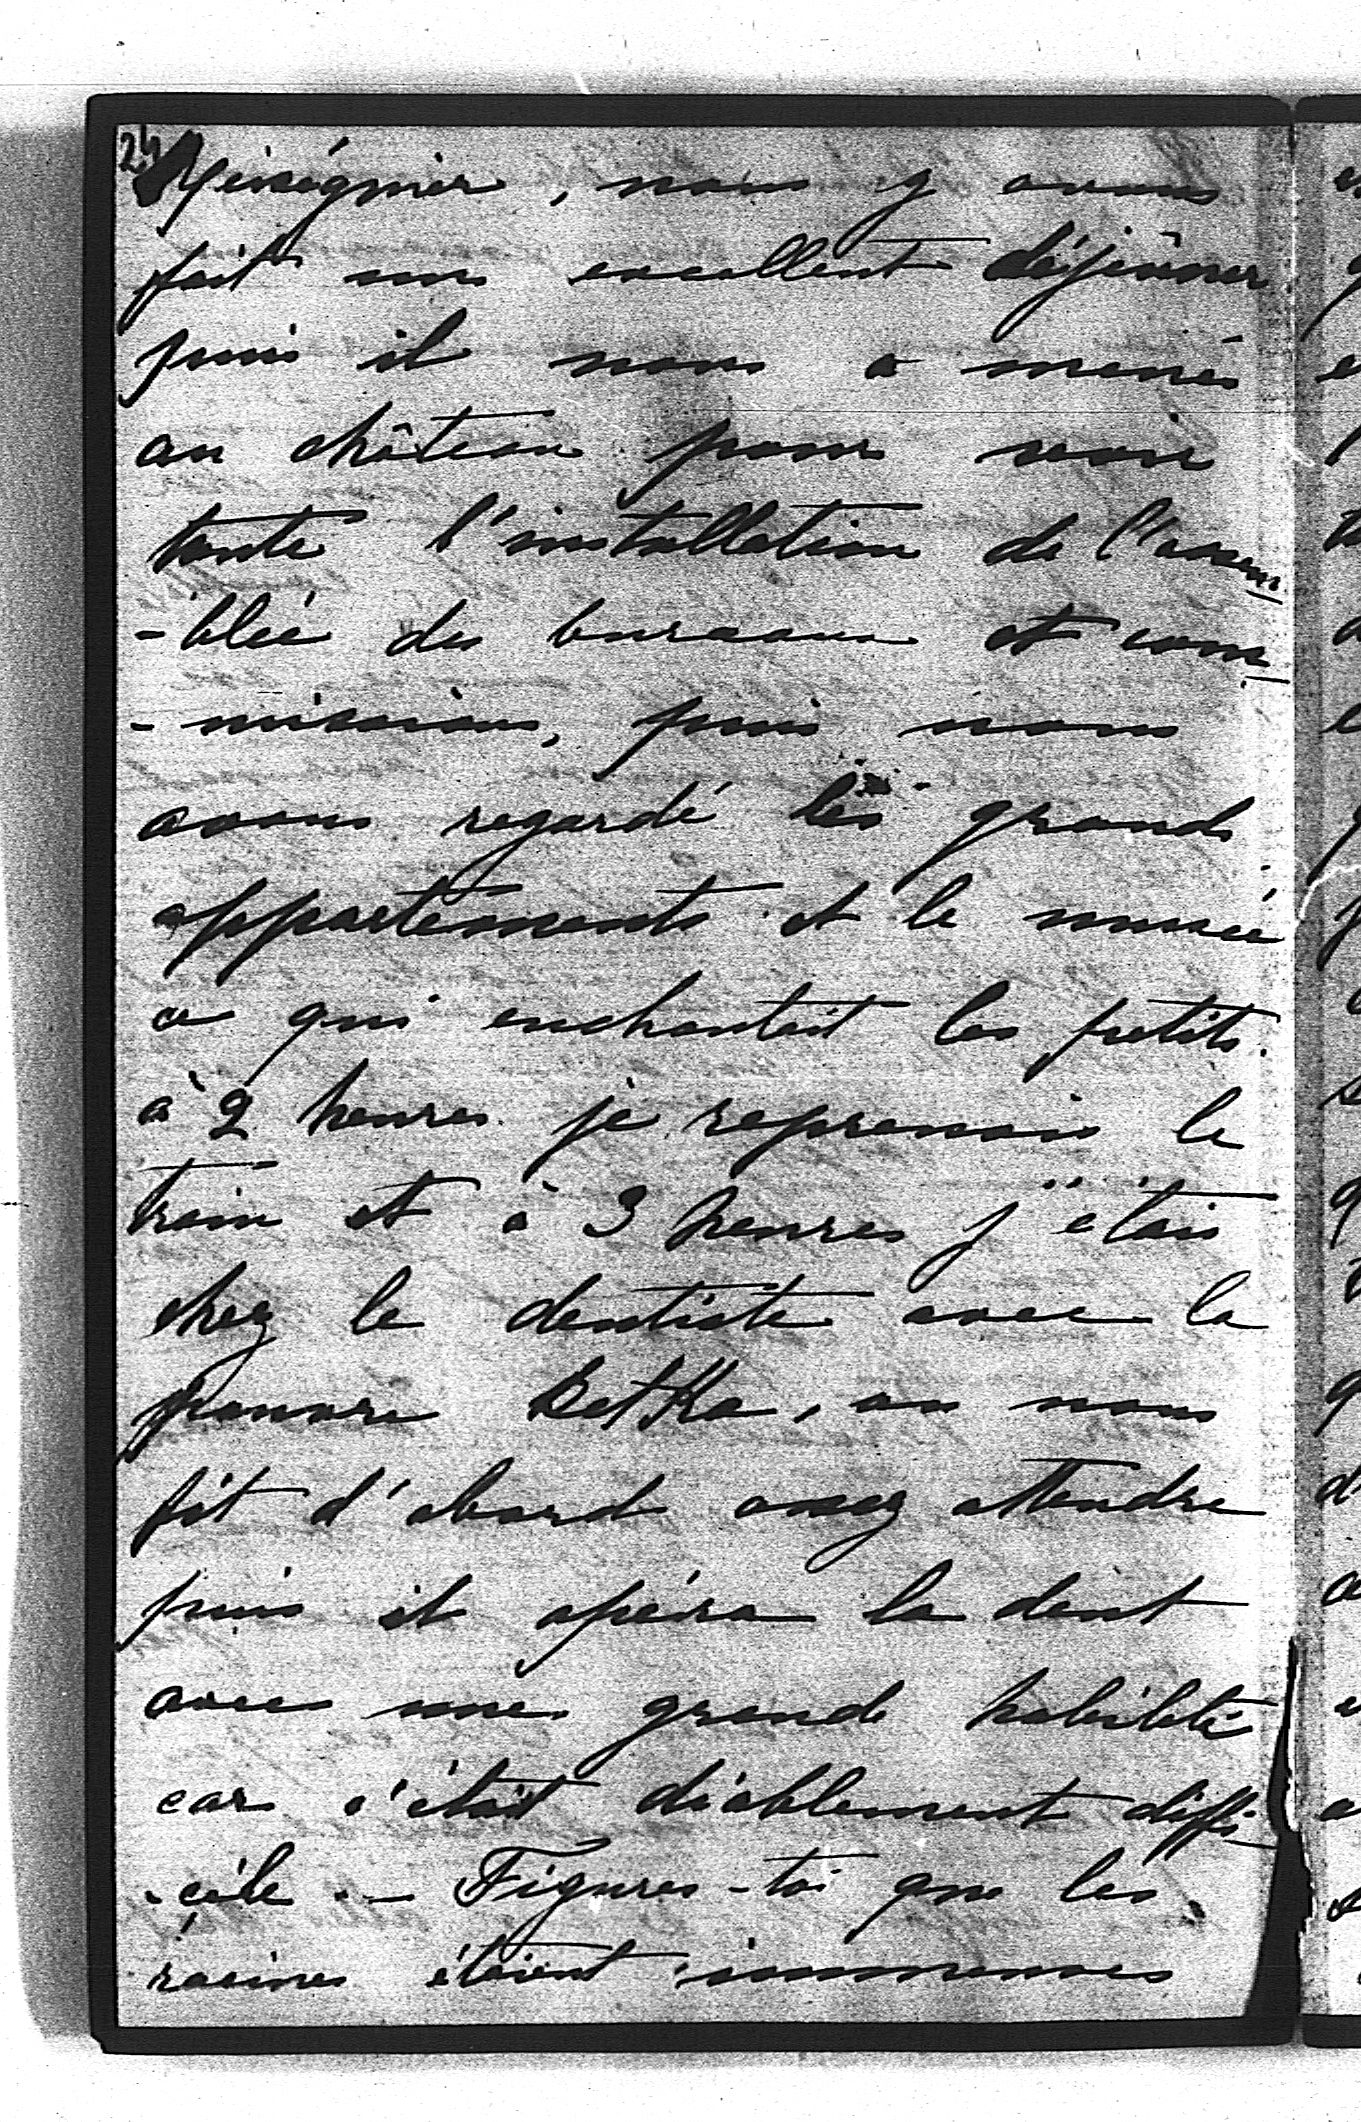 24
, nous y avons
fait un excellent déjeûner
puis il nous a menés
au château pour voir
toute l'installation de l'assem
-blée des bureaux et com
-missions, puis nous
avons regardé les grands
appartements et le musée
ce qui enchantait les petits.
à 2 heures je reprenais le
train et à 3 heures j'étais
chez le dentiste avec la
pauvre Betka, on nous
fit d'abord assez attendre
puis il opéra la dent
avec une grande habileté
car c'était diablement diffi
-cile. — Figures-toi que les
racines étaient immenses